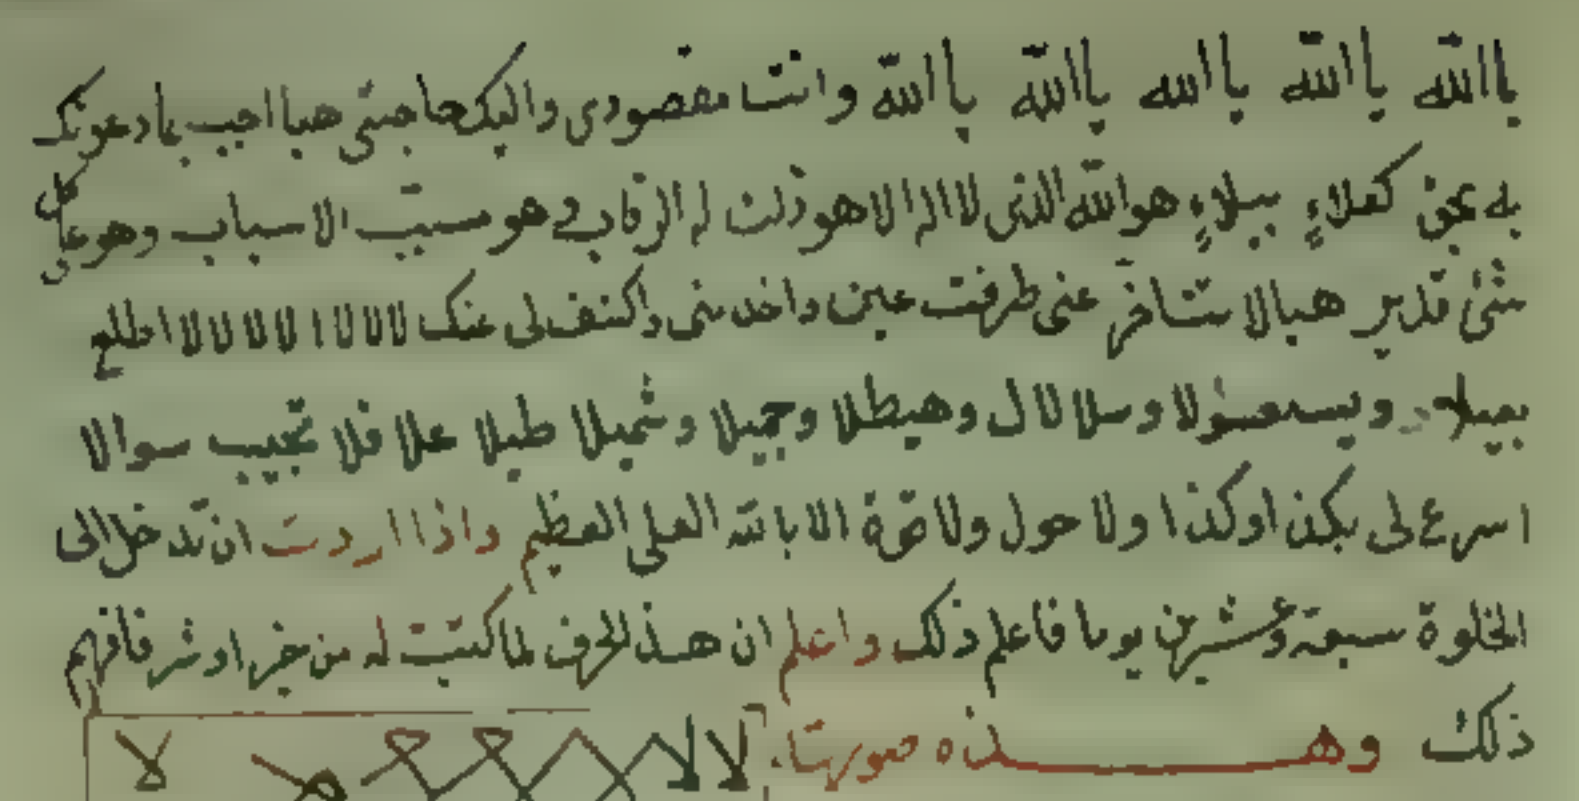 يا الله يا الله يا الله يا الله يا الله وانت مقصودى واليك حاجتى هيا اجيب يا دعوتك
به بحق كعلاءٍ ببلاءٍ هو الله الذى لا اله الا هو ذلت له الرقاب وهو مسبب الاسباب وهو على كل
شئ قدير هيا لا تتاخر عنى طرفت عين واخدمنى واكشف لى عنك لا لا لا ا لا لا لا لا اطلع
وسلا لال وهيطلا وجميلا وشميلا طيلا علا فلا تجيب سوالا
اسرع لى بكذا وكذا ولا حول ولا قوة الا بالله العلى العظيم واذا اردت ان تدخل الى
الخلوة سبعة وعشرين يوما فاعلم ذلك واعلم ان هذ الحرف لما كتبت له من خير او شر فافهم
ذلك وهذه صورتها
لا لا لا